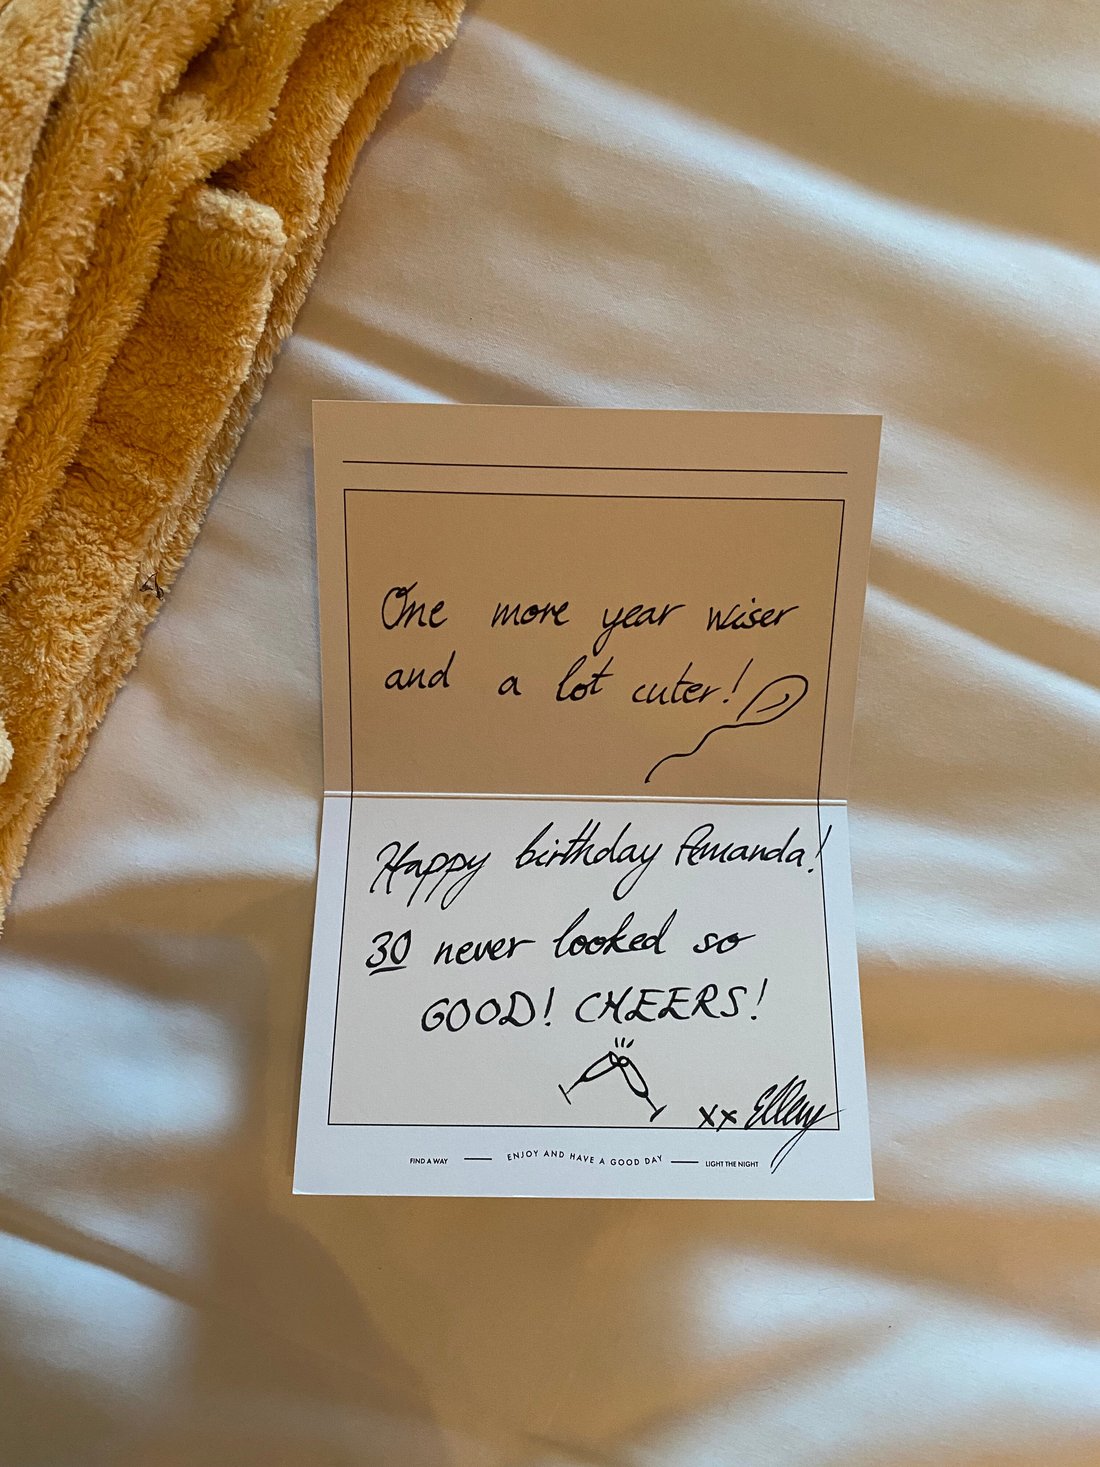 One more year wiser
and a lot cuter!
Happy birthday Amanda!
30 never looked so
GOOD! CHEERS!
xx Elleny
FIND A WAY — ENJOY AND HAVE A GOOD DAY — LIGHT THE NIGHT